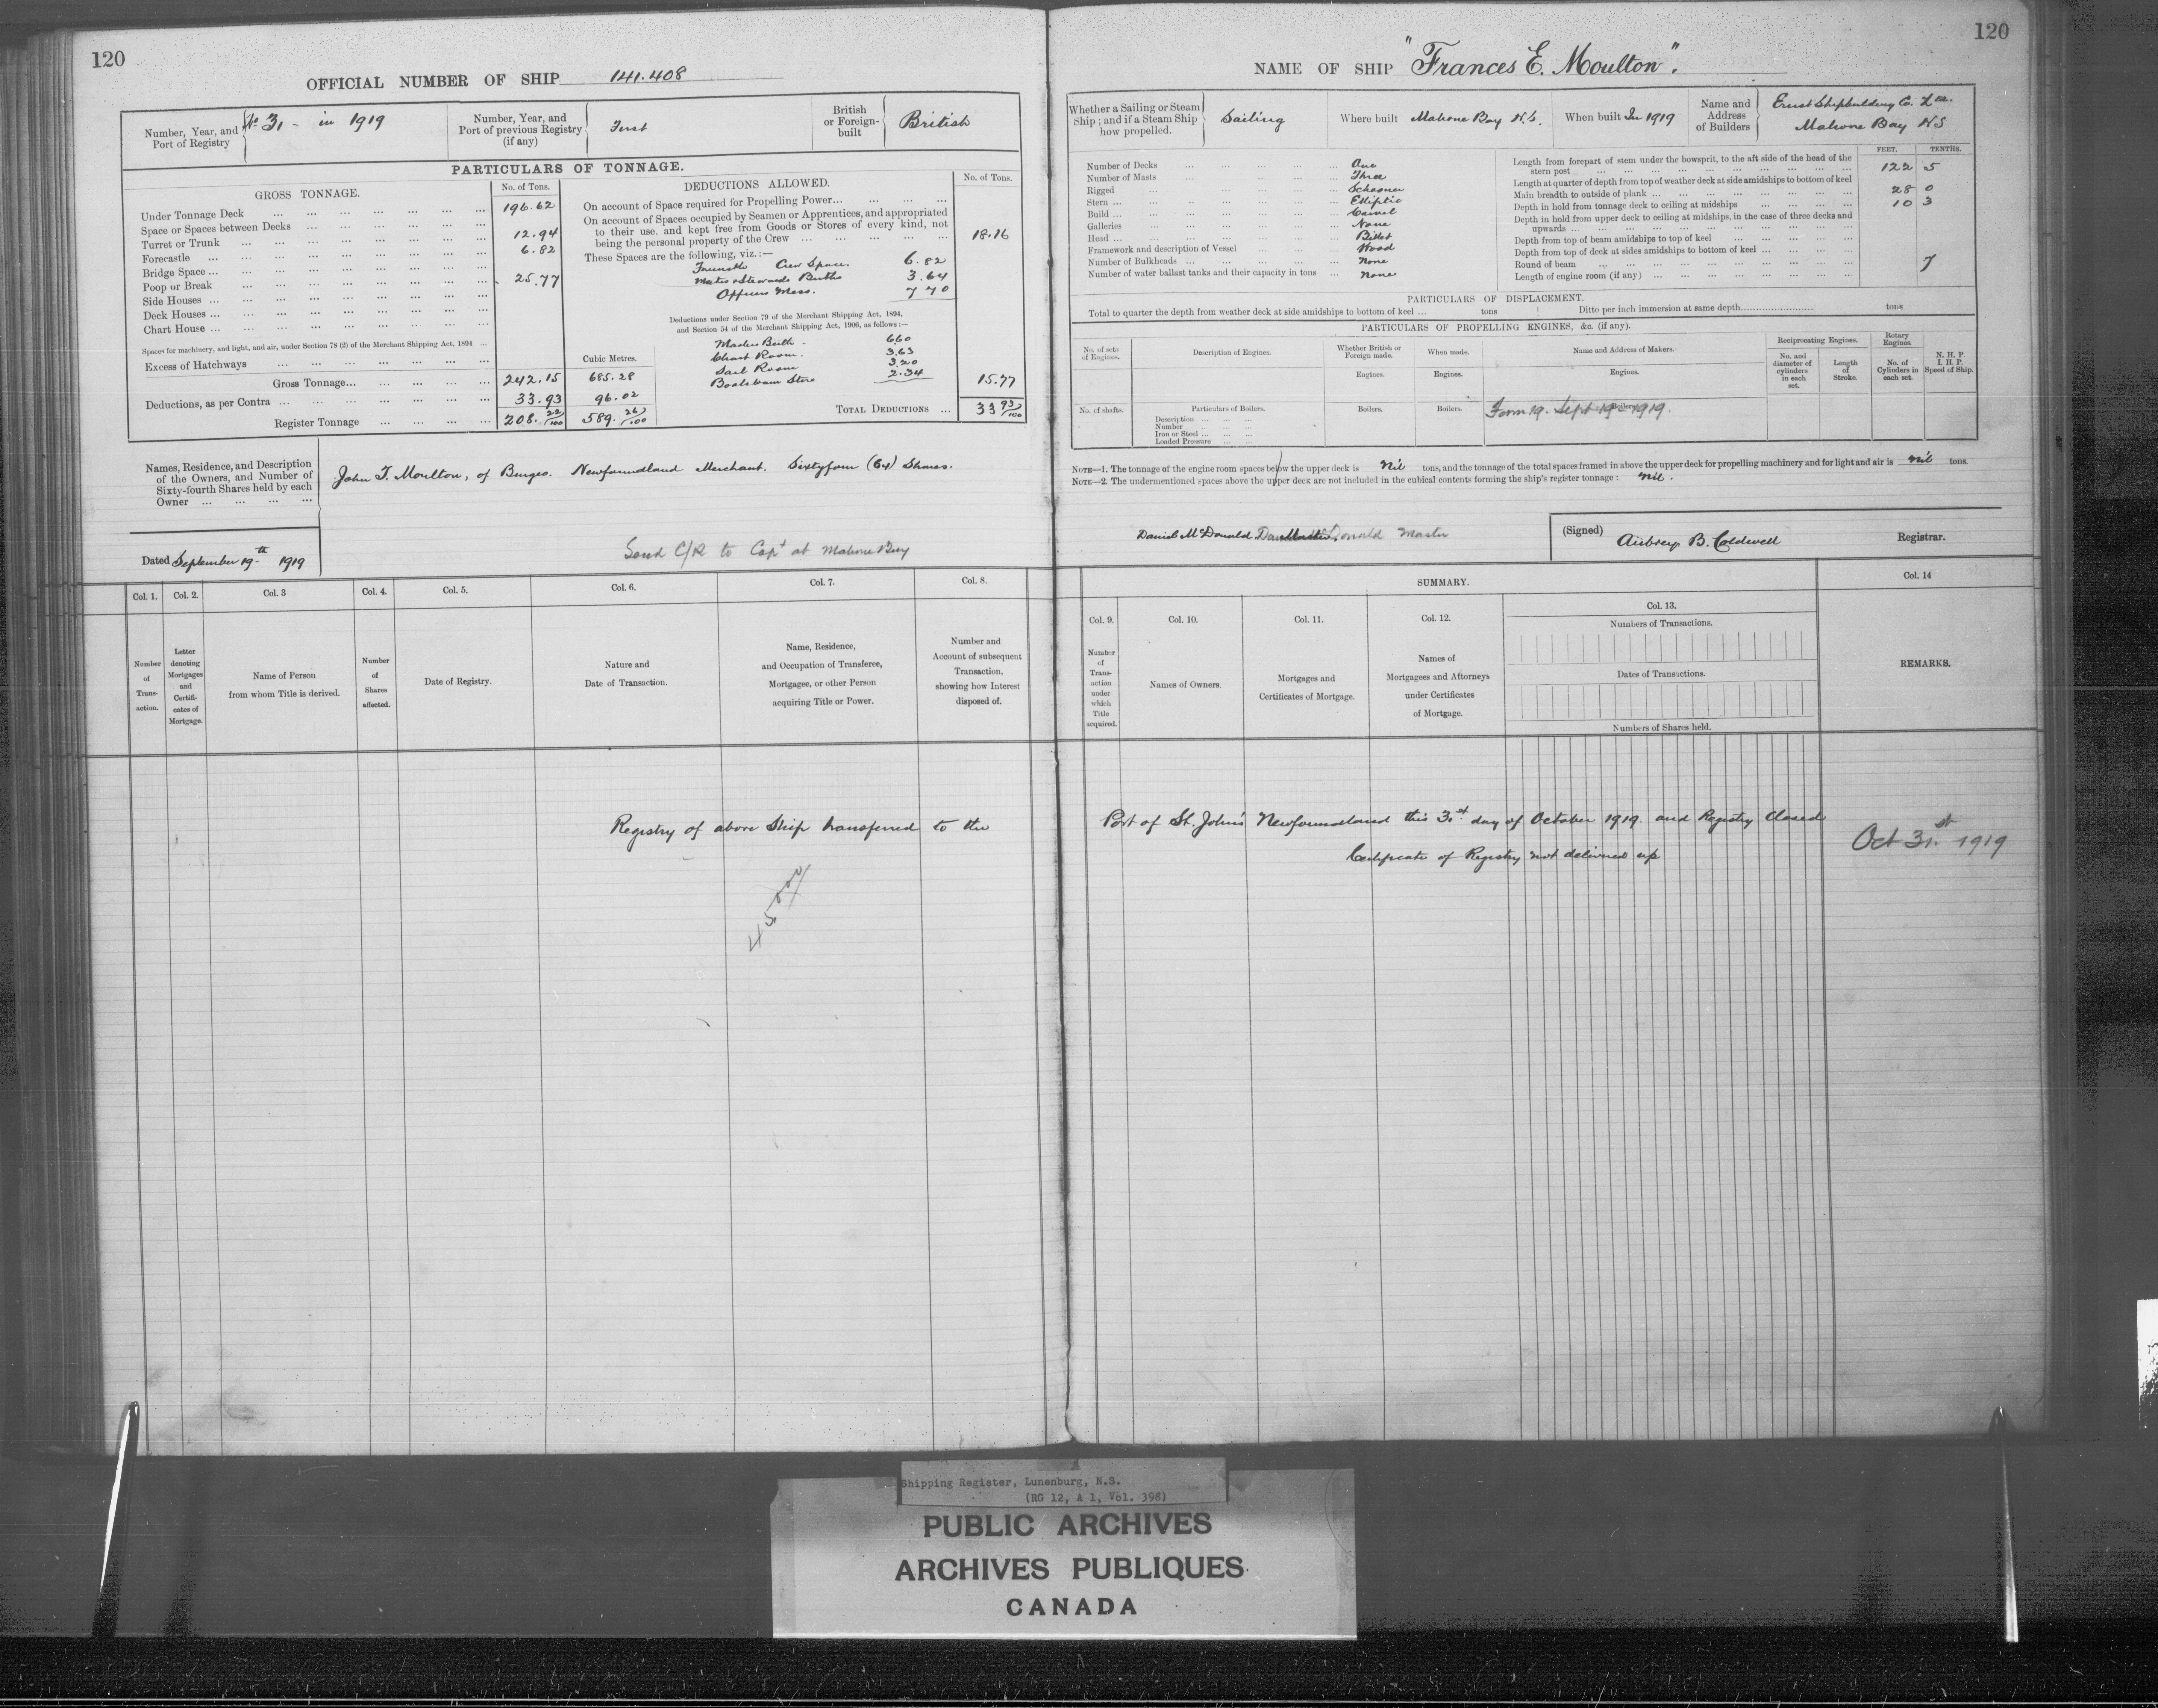 120
OFFICIAL NUMBER OF SHIP 141.408
Number, Year, and Port of Registry
No 31 - in 1919
Number, Year, and Port of previous Registry (if any)
First
British or Foreign-built
British
PARTICULARS OF TONNAGE.
GROSS TONNAGE.
No. of Tons.
Under Tonnage Deck ... 196.62
Space or Spaces between Decks ...
Turret or Trunk ... 12.94
Forecastle ... 6.82
Bridge Space ...
Poop or Break ... 25.77
Side Houses ...
Deck Houses ...
Chart House ...
Spaces for machinery, and light, and air, under Section 78 (2) of the Merchant Shipping Act, 1894 ...
Excess of Hatchways ...
Cubic Metres.
Gross Tonnage... 242.15 685.28
Deductions, as per Contra ... 33.93 96.02
Register Tonnage ... 208.22/100 589.26/100
DEDUCTIONS ALLOWED.
No. of Tons.
On account of Space required for Propelling Power...
On account of Spaces occupied by Seamen or Apprentices, and appropriated
to their use, and kept free from Goods or Stores of every kind, not
being the personal property of the Crew ... 18.16
These Spaces are the following, viz.:—
Crew Space. 6.82
Mates & Stewards Berths 3.64
Officers Mess. 7 70
Deductions under Section 79 of the Merchant Shipping Act, 1894,
and Section 54 of the Merchant Shipping Act, 1906, as follows:—
Masters Berth - 6.60
Chart Room. 3.63
Sail Room 3.20
Boatswain Store 2.34
15.77
TOTAL DEDUCTIONS ... 33 93/100
Names, Residence, and Description
of the Owners, and Number of
Sixty-fourth Shares held by each
Owner ...
John T. Moulton, of Burgeo. Newfoundland Merchant. Sixtyfour (64) Shares.
Dated September 19th 1919
Send C/R to Capt at Mahone Bay
Col. 1.
Number of Transaction.
Col. 2.
Letter denoting Mortgages and Certificates of Mortgage.
Col. 3
Name of Person from whom Title is derived.
Col. 4.
Number of Shares affected.
Col. 5.
Date of Registry.
Col. 6.
Nature and Date of Transaction.
Col. 7.
Name, Residence, and Occupation of Transferee, Mortgagee, or other Person acquiring Title or Power.
Col. 8.
Number and Account of subsequent Transaction, showing how Interest disposed of.
120
NAME OF SHIP "Frances E. Moulton".
Whether a Sailing or Steam Ship; and if a Steam Ship how propelled.
Sailing
Where built Mahone Bay N.S.
When built In 1919
Name and Address of Builders
Ernst Shipbuilding Co. Ltd.
Mahone Bay NS
Number of Decks ... One
Number of Masts ... Three
Rigged ... Schooner
Stern ... Elliptic
Build ... Carvel
Galleries ... None
Head ... Billet
Framework and description of Vessel ... Wood
Number of Bulkheads ... None
Number of water ballast tanks and their capacity in tons ... None
FEET. TENTHS.
Length from forepart of stem under the bowsprit, to the aft side of the head of the
stern post ... 122 5
Length at quarter of depth from top of weather deck at side amidships to bottom of keel
Main breadth to outside of plank ... 28 0
Depth in hold from tonnage deck to ceiling at midships ... 10 3
Depth in hold from upper deck to ceiling at midships, in the case of three decks and
upwards ...
Depth from top of beam amidships to top of keel ...
Depth from top of deck at sides amidships to bottom of keel ...
Round of beam ... 7
Length of engine room (if any) ...
PARTICULARS OF DISPLACEMENT.
Total to quarter the depth from weather deck at side amidships to bottom of keel ... tons
Ditto per inch immersion at same depth... tons
PARTICULARS OF PROPELLING ENGINES, &c. (if any).
No. of sets of Engines.
Description of Engines.
Whether British or Foreign made.
Engines.
When made.
Engines.
Name and Address of Makers.
Engines.
Reciprocating Engines.
No. and diameter of cylinders in each set.
Length of Stroke.
Rotary Engines.
No. of Cylinders in each set.
N. H. P.
I. H. P.
Speed of Ship.
No. of shafts.
Particulars of Boilers.
Description ...
Number ...
Iron or Steel ...
Loaded Pressure ...
Boilers.
Boilers.
Boilers.
Form 19. Sept 19 - 1919.
NOTE—1. The tonnage of the engine room spaces below the upper deck is Nil tons, and the tonnage of the total spaces framed in above the upper deck for propelling machinery and for light and air is Nil tons.
NOTE—2. The undermentioned spaces above the upper deck are not included in the cubical contents forming the ship's register tonnage: Nil.
Daniel McDonald Master
(Signed) Aubrey B. Caldwell Registrar.
SUMMARY.
Col. 9.
Number of Transaction under which Title acquired.
Col. 10.
Names of Owners.
Col. 11.
Mortgages and Certificates of Mortgage.
Col. 12.
Names of Mortgagees and Attorneys under Certificates of Mortgage.
Col. 13.
Numbers of Transactions.
Dates of Transactions.
Numbers of Shares held.
Col. 14
REMARKS.
Registry of above Ship transferred to the Port of St. John's Newfoundland this 31st day of October 1919 and Registry Closed
Certificate of Registry not delivered up
Oct 31st 1919
Shipping Register, Lunenburg, N.S.
(RG 12, A 1, Vol. 398)
PUBLIC ARCHIVES
ARCHIVES PUBLIQUES
CANADA